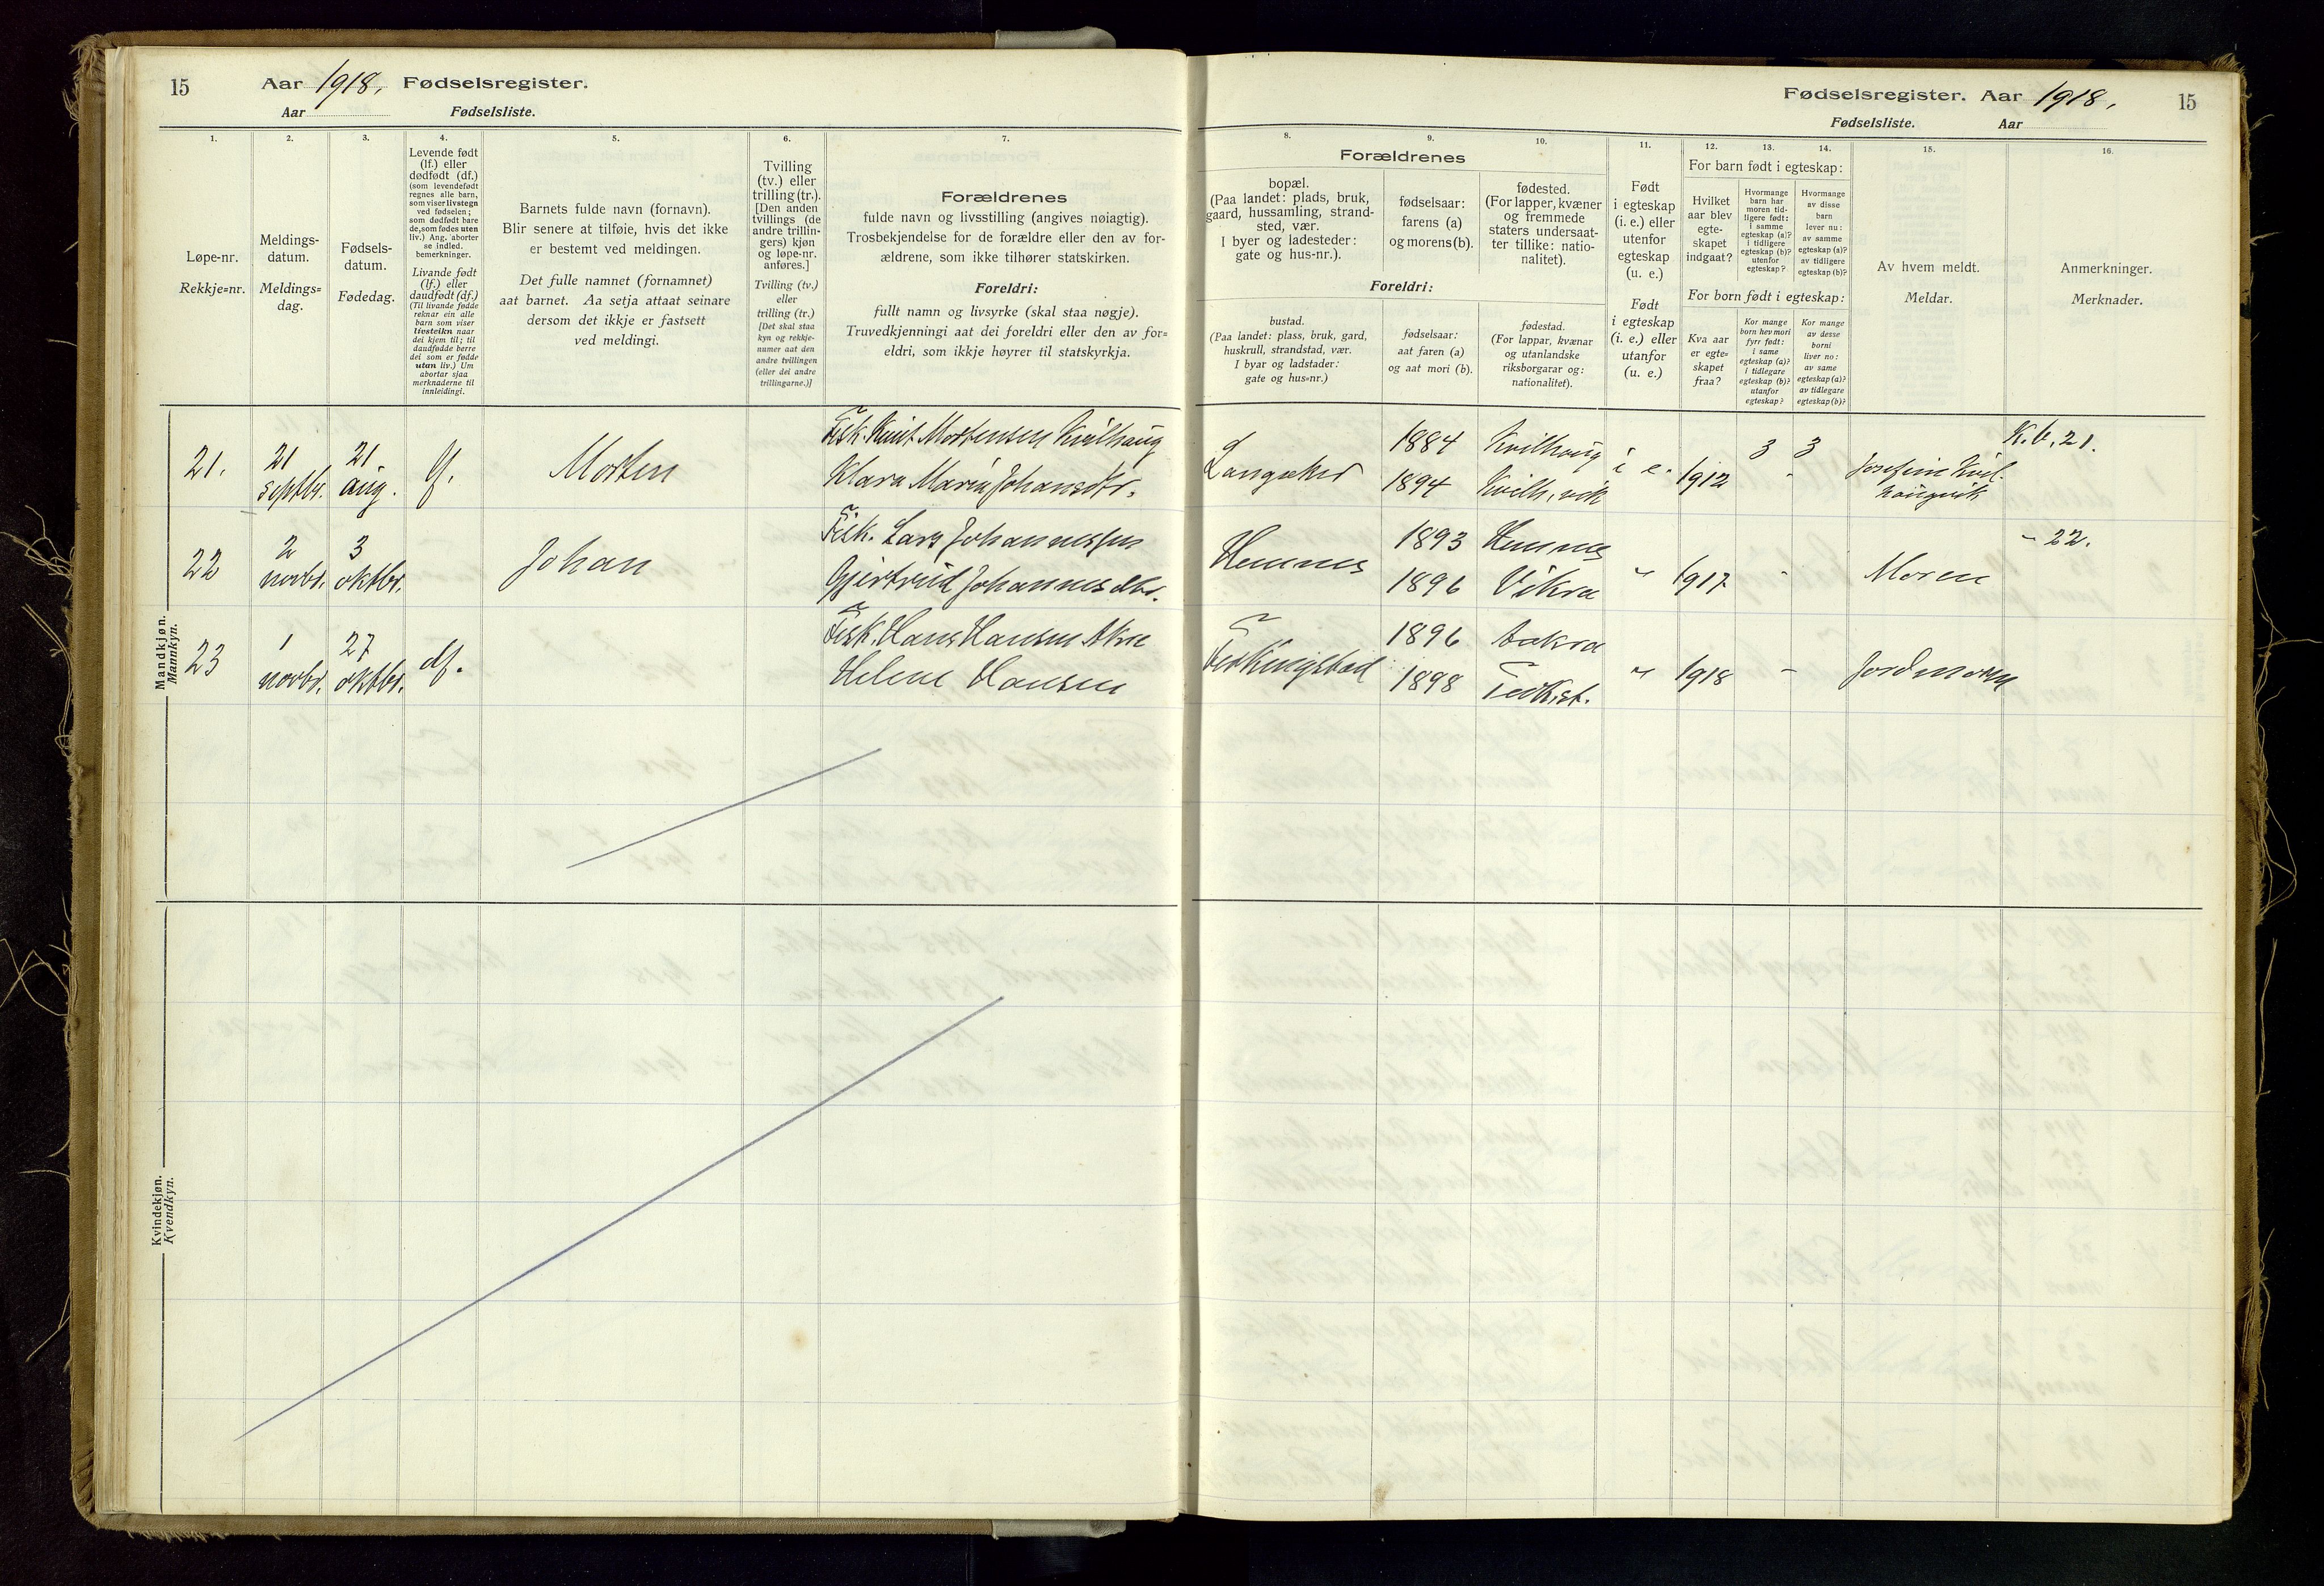 15
Aar 1918, Fødselsregister.
Aar Fødselsliste.
1.
2.
3.
4.
5.
6.
7.
Løpe-nr.
Rekkje=nr.
Meldings-
datum.
Meldings=
dag.
Fødsels-
datum.
Fødedag.
Levende født
(lf.) eller
dødfødt (df.)
(som levendefødt
regnes alle barn,
som viser livstegn
ved fødselen;
som dødfødt bare
de, som fødes uten
liv.) Ang. aborter
se indled.
bemerkninger.
Livande født
(lf.) eller
daudfødt (df.)
(Til livande fødde
reknar ein alle
barn som viser
livsteikn naar
dei kjem til; til
daudfødde berre
dei som er fødde
utan liv.) Um
abortar sjaa
merknaderne til
innleidingi.
Barnets fulde navn (fornavn).
Blir senere at tilføie, hvis det ikke
er bestemt ved meldingen.
Det fulle namnet (fornamnet)
aat barnet. Aa setja attaat seinare
dersom det ikkje er fastsett
ved meldingi.
Tvilling
(tv.) eller
trilling (tr.).
[Den anden
tvillings (de
andre trillin-
gers) kjøn
og løpe-nr.
anføres.]
Tvilling (tv.)
eller
trilling (tr.)
[Det skal staa
kyn og rekkje-
numer aat den
andre tvillingen
(eller dei andre
trillingarne.)]
Forældrenes
fulde navn og livsstilling (angives nøiagtig).
Trosbekjendelse for de forældre eller den av for-
ældrene, som ikke tilhører statskirken.
Foreldri:
fullt namn og livsyrke (skal staa nøgje).
Truvedkjenningi aat dei foreldri eller den av for=
eldri, som ikkje høyrer til statskyrkja.
Mandkjøn.
Mannkyn.
21.
21
septbr.
21
aug.
lf.
Morten
Fisk. Knut Mortensen Kvilhaug
Klara Marie Johansdtr.
22
2
novbr.
3
oktbr.
Johan
Fisk. Lars Johannessen
Gjertrud Johannesdtr.
23
1
novbr.
27
oktbr.
df.
Fisk. Hans Hansen Akre
Helene Hansen
Kvindekjøn.
Kvendkyn.
Fødselsregister. Aar 1918,
15
Fødselsliste. Aar
8.
9.
10.
11.
12.
13.
14.
15.
16.
Forældrenes
bopæl.
(Paa landet: plads, bruk,
gaard, hussamling, strand-
sted, vær.
I byer og ladesteder:
gate og hus-nr.).
fødselsaar:
farens (a)
og morens (b).
fødested.
(For lapper, kvæner
og fremmede
staters undersaat-
ter tillike: natio-
nalitet).
Foreldri:
bustad.
(Paa landet: plass, bruk, gard,
huskrull, strandstad, vær.
I byar og ladstader:
gate og hus=nr.)
fødselsaar:
aat faren (a)
og aat mori (b).
fødestad.
(For lappar, kvænar
og utanlandske
riksborgarar og:
nationalitet).
Født
i egteskap
(i. e.) eller
utenfor
egteskap
(u. e.)
Født
i egteskap
(i. e.) eller
utanfor
(u. e.)
For barn født i egteskap:
Hvilket
aar blev
egte-
skapet
indgaat?
Hvormange
barn har
moren tid-
ligere født:
i samme
egteskap (a)?
i tidligere
egteskap (b)?
utenfor
egteskap?
Hvormange
av disse
barn
lever nu:
av samme
egteskap (a)?
av tidligere
egteskap (b)?
For born født i egteskap:
Kva aar
er egte=
skapet
fraa?
Kor mange
born hev mori
fyrr født:
i same
egteskap (a)?
i tidlegare
egteskap (b)?
utanfor
egteskap?
Kor mange
av desse
borni
liver no:
av same
egteskap (a)?
av tidlegare
egteskap (b)?
Av hvem meldt.
Meldar.
Anmerkninger.
Merknader.
Langaker
1884
1894
Kvilhaug
Kvilh.vik
i e.
1912
3
3
Josefine Kvil-
haugvik
K. b. 21.
Hemnes
1893
1896
Hemnes
Vikra
"
1917
-
Moren
- 22.
Ferkingstad
1896
1898
Aakra
Ferk.st.
"
1918
-
Jordmoren